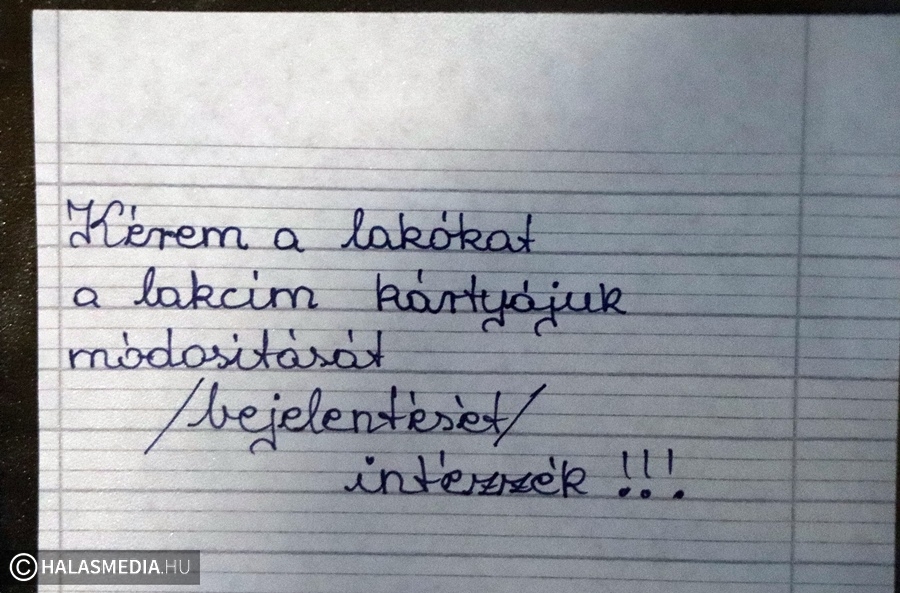 Kérem a lakókat
a lakcim kártyájuk
módositását
/bejelentését/
intézzék !!!
© HALASMEDIA.HU